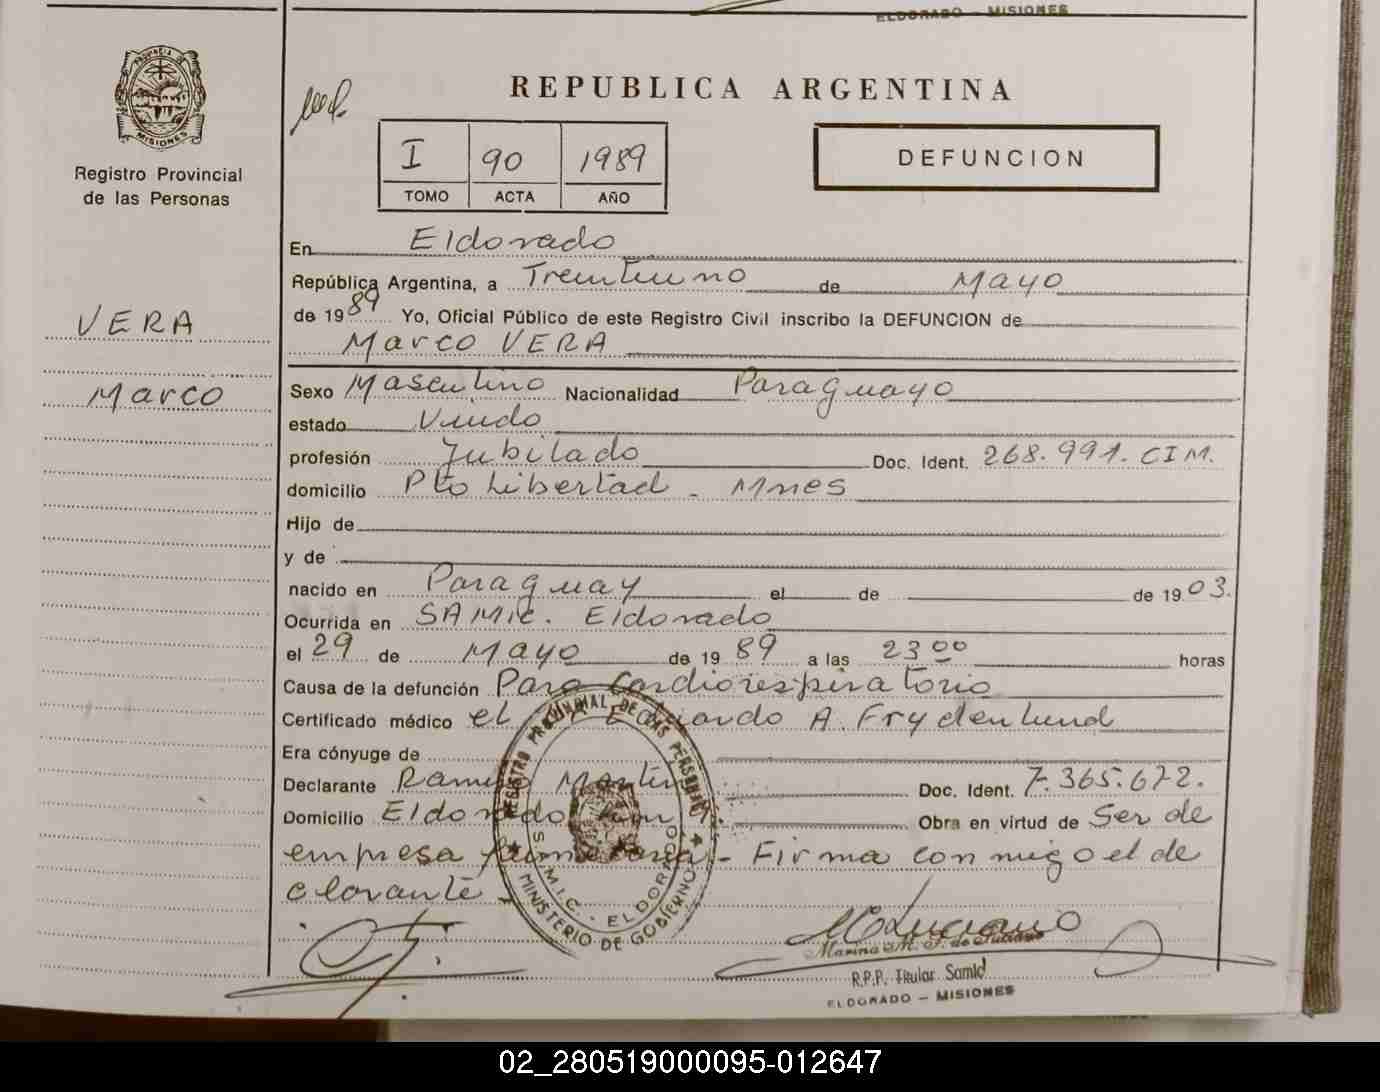 ELDORADO — MISIONES
PROVINCIA DE
MISIONES
Registro Provincial
de las Personas
VERA
Marco
REPUBLICA ARGENTINA
I 90 1989
TOMO ACTA AÑO
DEFUNCION
En Eldorado
República Argentina, a Treintiuno de Mayo
de 1989 Yo, Oficial Público de este Registro Civil inscribo la DEFUNCION de
Marco VERA
Sexo Masculino Nacionalidad Paraguayo
estado Viudo
profesión Jubilado Doc. Ident. 268.991. CIM.
domicilio Pto Libertad - Mnes
Hijo de
y de
nacido en Paraguay el de de 1903.
Ocurrida en SAMIC. Eldorado
el 29 de Mayo de 1989 a las 23 00 horas
Causa de la defunción Paro Cardiorespiratorio
Certificado médico el A. Frydenlund
Era cónyuge de
Declarante Ramiro Doc. Ident. 7.365.672.
Domicilio Eldorado Obra en virtud de Ser de
empresa funeraria - Firma conmigo el de
clarante
REGISTRO PROVINCIAL DE LAS PERSONAS
S.A.M.I.C. - ELDORADO
MINISTERIO DE GOBIERNO
R.P.P. Titular Samic
ELDORADO — MISIONES
02_280519000095-012647